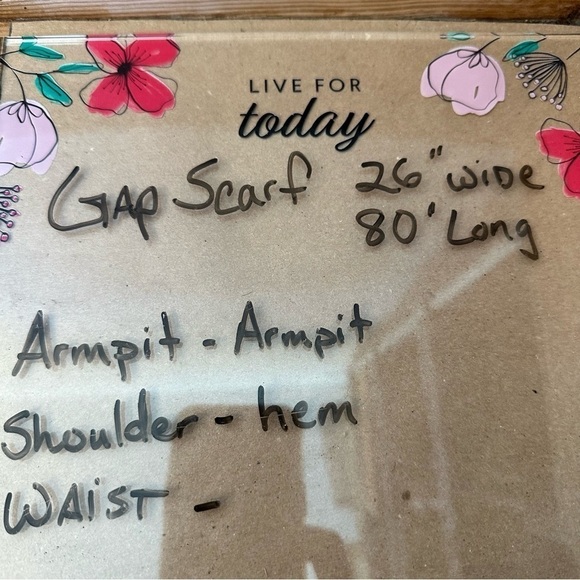 LIVE FOR
today
GAP Scarf 26" WIDE
80" Long
Armpit - Armpit
Shoulder - hem
WAIST -